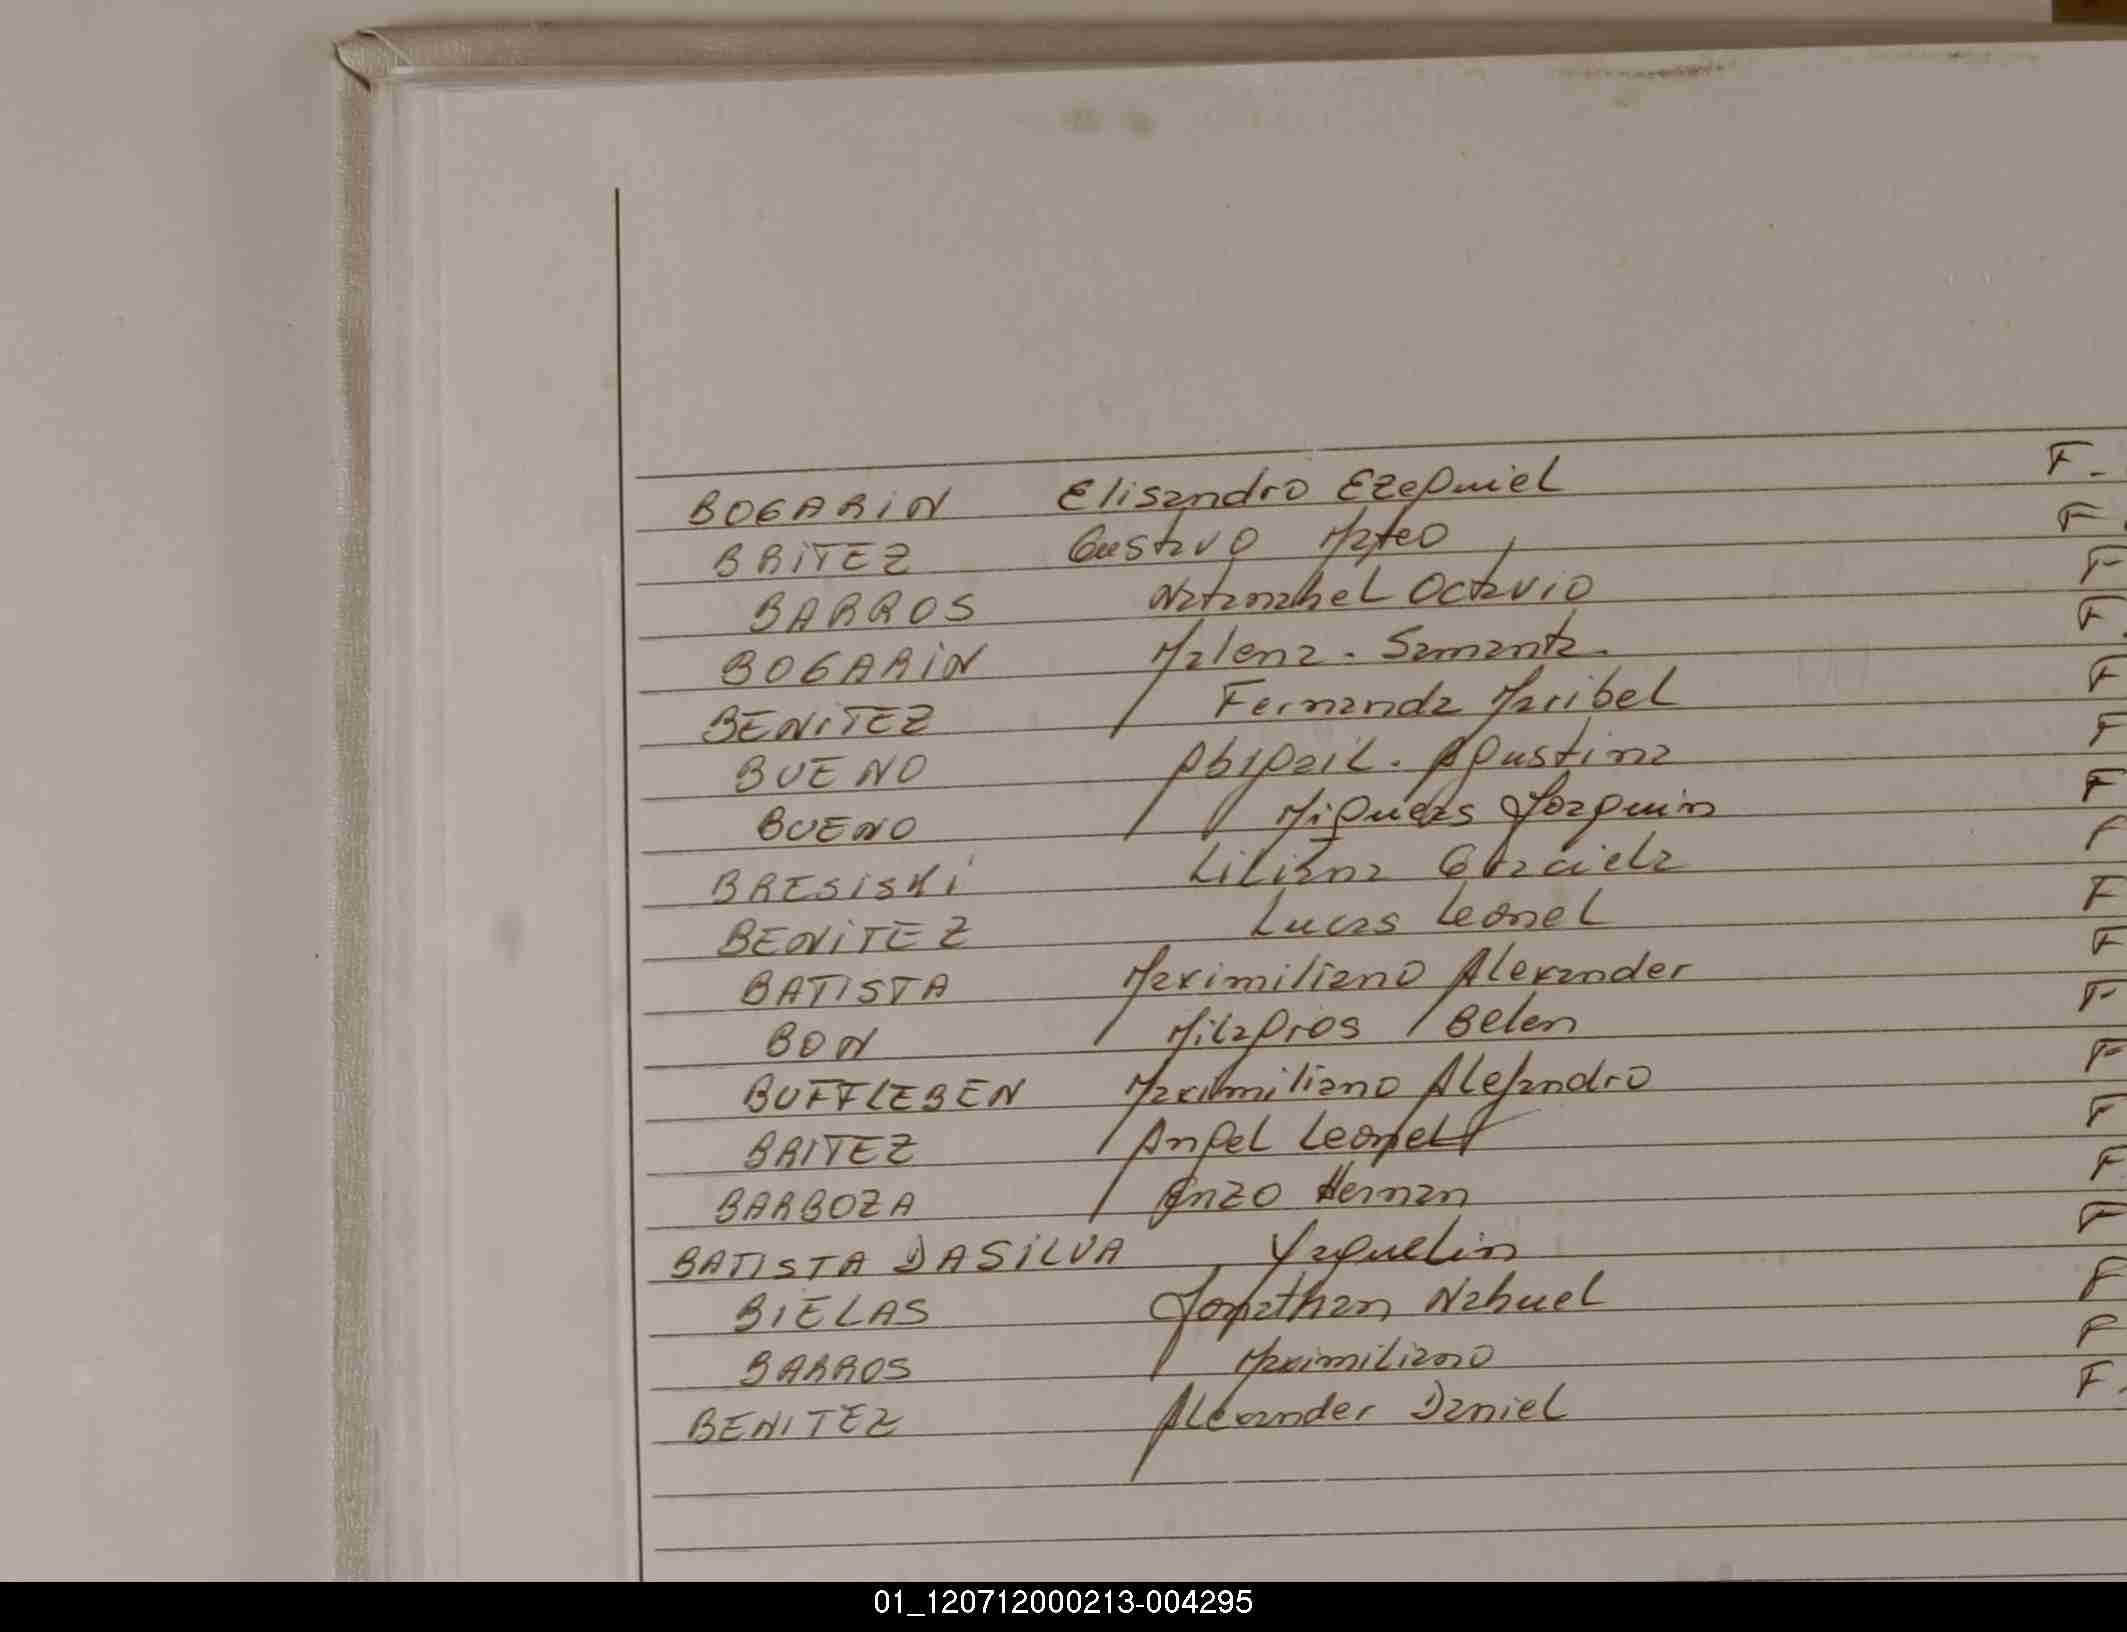 BOGARiN Elisandro Ezequiel F.
BRiTEZ Gustavo Mateo F.
BARROS Natanahel Octavio F
BOGARiN Malena - Samanta. F.
BENiTEZ Fernanda Maribel F
BUENO Abigail. Agustina F
BUENO Joaquin F
BRESiSKi Liliana Graciela F
BENiTEZ Lucas Leonel F
BATISTA Maximiliano Alexander F
BON Milagros Belen F
BUFFLEBEN Maximiliano Alejandro F
BRITEZ Angel Leonel F
BARBOZA Enzo Hernan F
BATISTA DASiLVA Yaquelin F
BiELAS Jonathan Nahuel F
BARROS Maximiliano F
BENITEZ Alexander Daniel F.
01_120712000213-004295